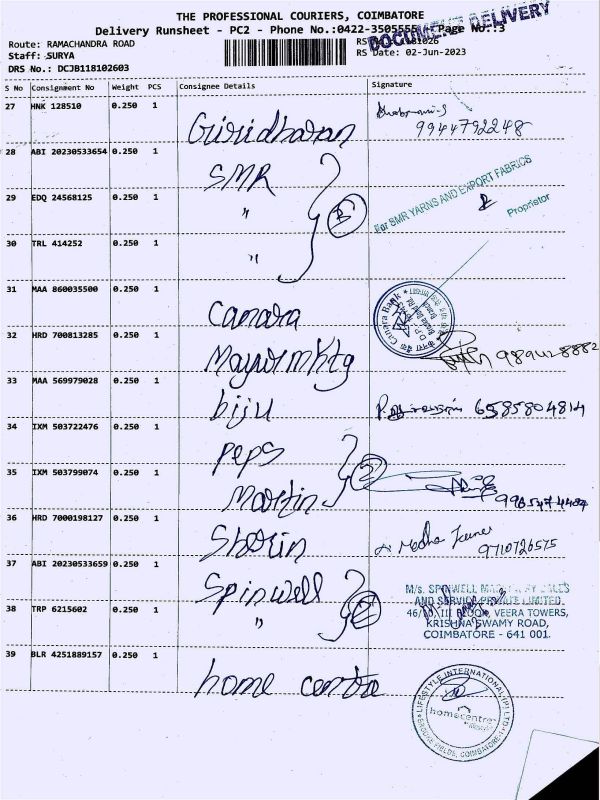 THE PROFESSIONAL COURIERS, COIMBATORE
DOCUMENT DELIVERY
Delivery Runsheet - PC2 - Phone No.:0422-3505555 Page No.:3
Route: RAMACHANDRA ROAD
Staff: SURYA
RS Date: 02-Jun-2023
DRS No.: DCJB118102603
S No Consignment No Weight PCS Consignee Details Signature
27 HNK 128510 0.250 1 Giridharan 9944792248
28 ABI 20230533654 0.250 1 SMR
29 EDQ 24568125 0.250 1 "
For SMR YARNS AND EXPORT FABRICS
Proprietor
30 TRL 414252 0.250 1 "
31 MAA 860035500 0.250 1 Canara
Canara Bank
32 HRD 700813285 0.250 1 Mayur mktg
33 MAA 569979028 0.250 1 biju 6585804814
34 IXM 503722476 0.250 1 Peps
35 IXM 503799074 0.250 1 Martin
36 HRD 7000198127 0.250 1 Sherin 9710726575
37 ABI 20230533659 0.250 1 Spinwell
38 TRP 6215602 0.250 1 "
M/s. SPINWELL
AND SERVICE PRIVATE LIMITED
VEERA TOWERS,
KRISHNASWAMY ROAD,
COIMBATORE - 641 001.
39 BLR 4251889157 0.250 1 home centre
LIFESTYLE INTERNATIONAL (P) LTD
homecentre